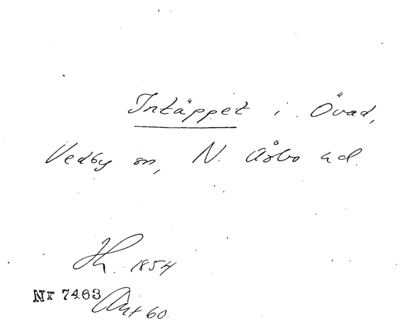 Intäppet i Övad,
Vedby sn, N. Åsbo hd.
Hh. 1854
Nr 7463 Ant 60.